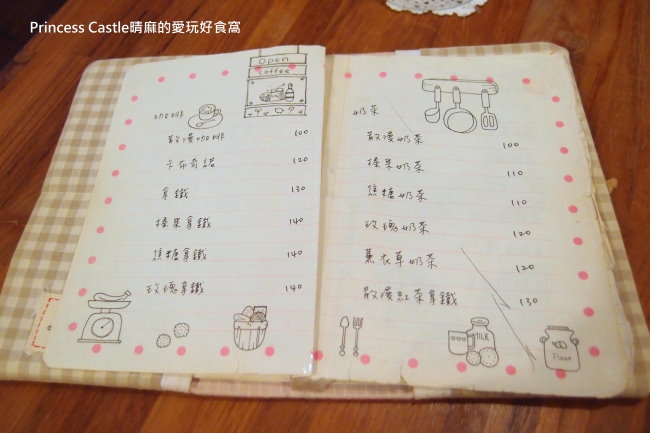 Princess Castle晴麻的愛玩好食窩
Open
coffee
咖啡
散漫咖啡 100
卡布奇諾 120
拿鐵 130
榛果拿鐵 140
焦糖拿鐵 140
玫瑰拿鐵 140
奶茶
散漫奶茶 100
榛果奶茶 110
焦糖奶茶 110
玫瑰奶茶 120
薰衣草奶茶 120
散漫紅茶拿鐵 130
MILK
Flour